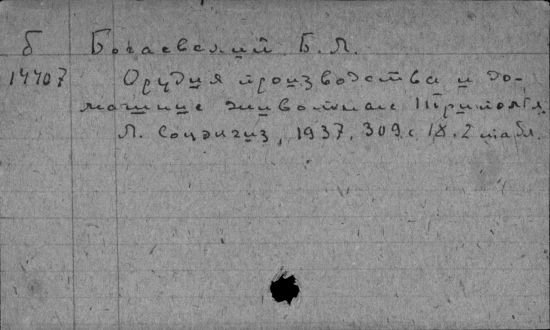 б Богаевский Б. Л.
14407 Орудия производства и до-
машние животные Триполья.
Л. Соцэкгиз, 1937. 309 с. IX. 2 табл.